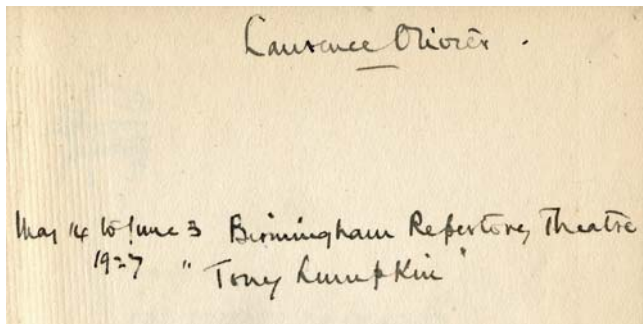 Laurence Olivier.
May 14 to June 3 Birmingham Repertory Theatre
1927 "Tony Lumpkin"